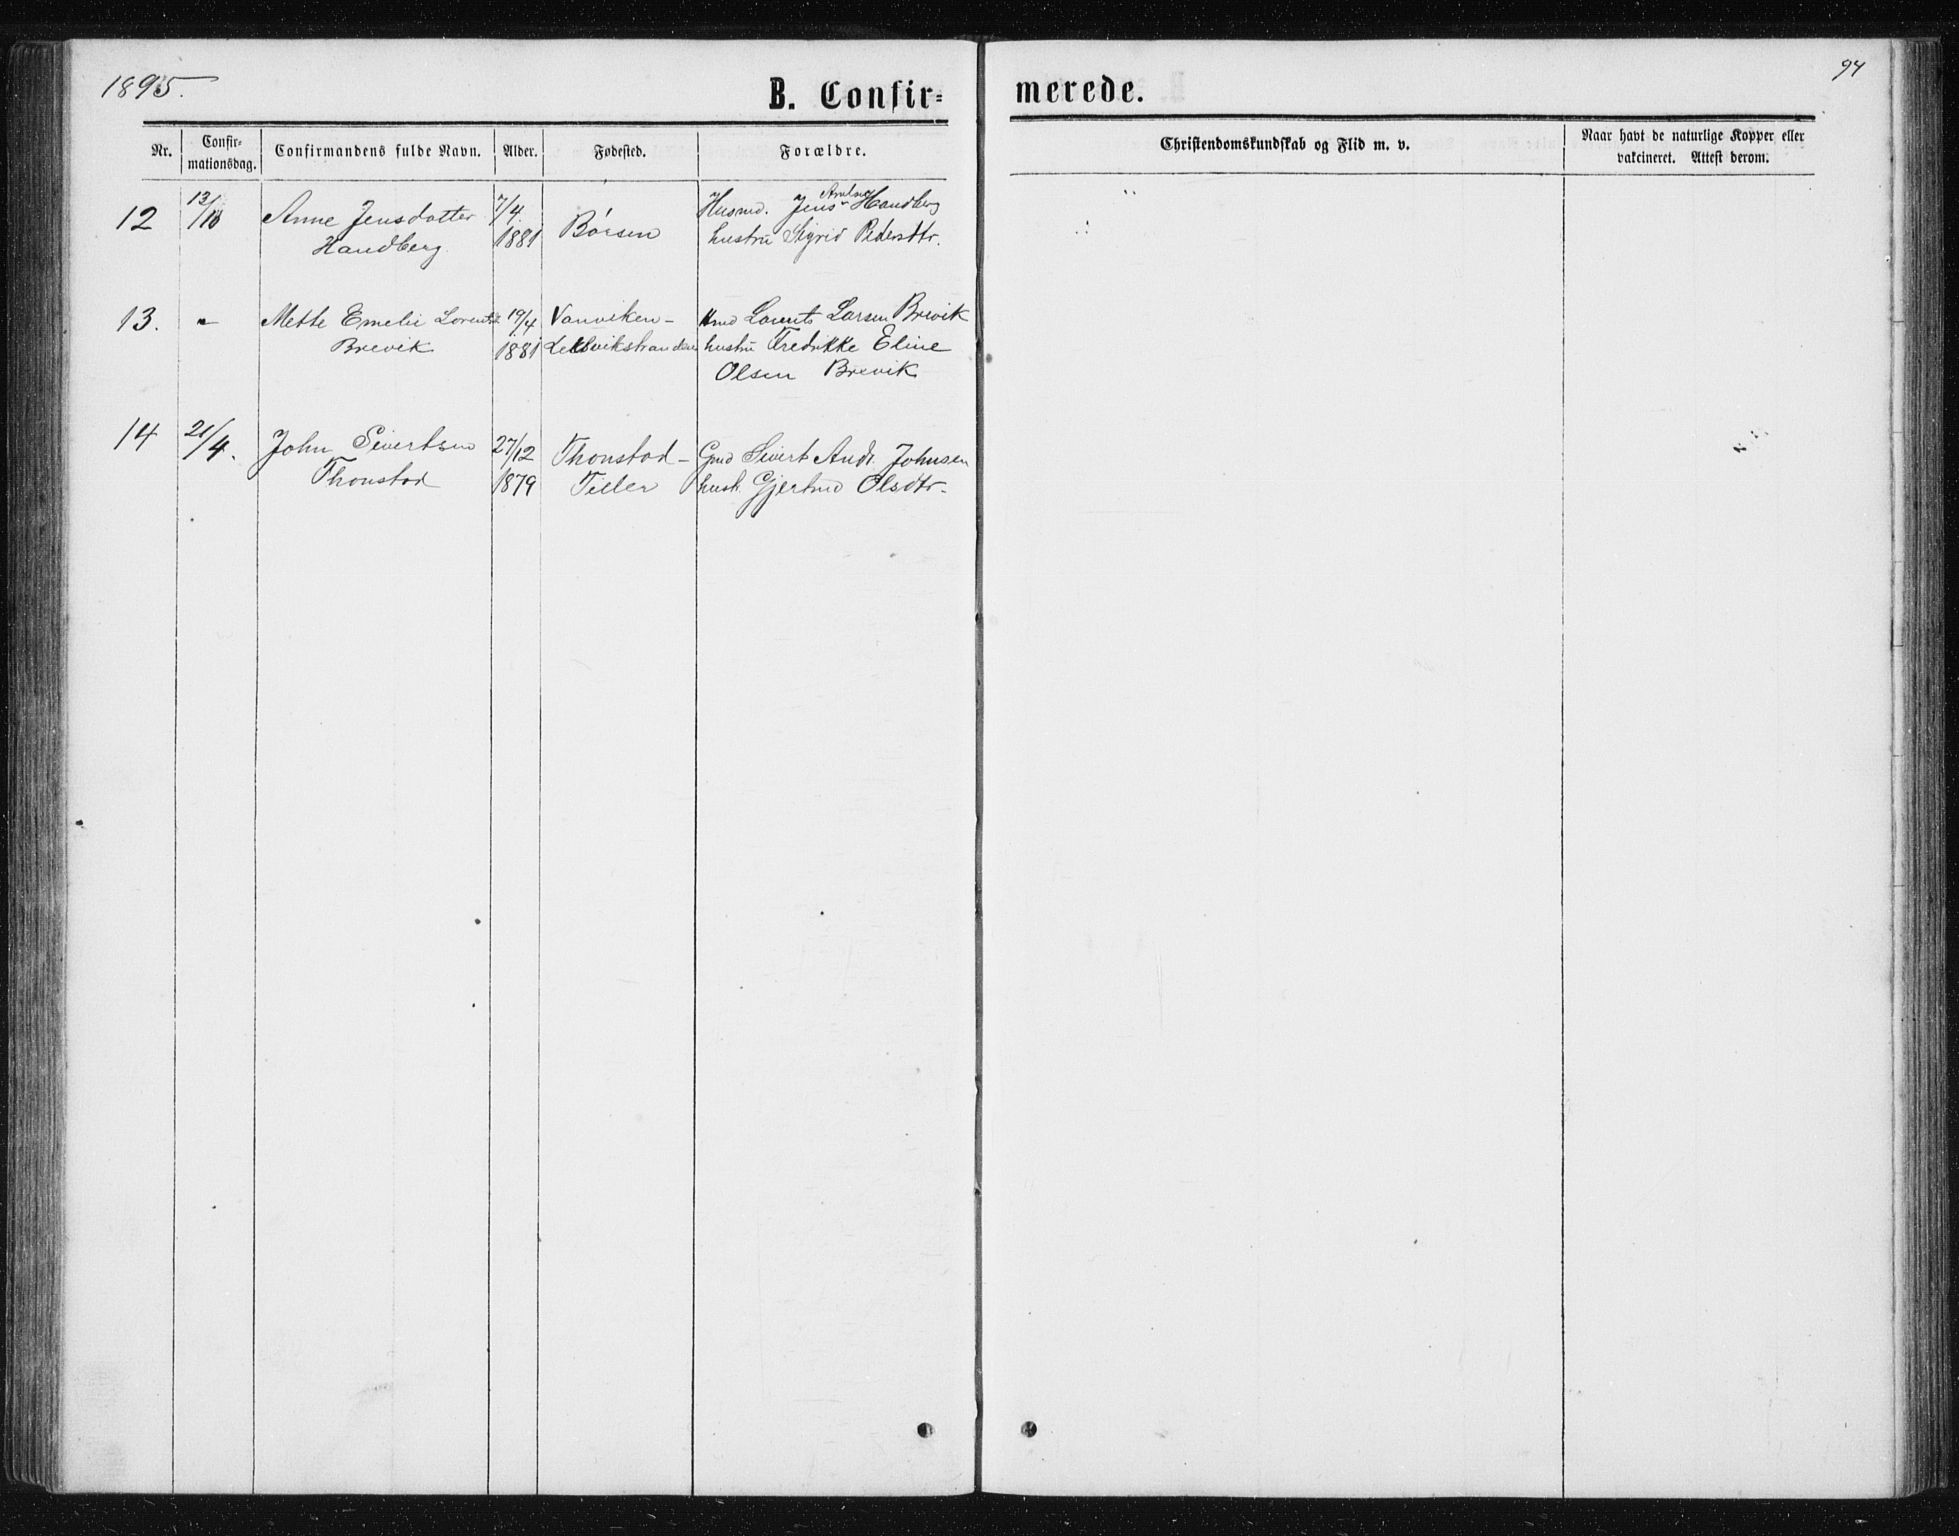 1895.
94
B. Confir-
merede.
Nr.
Confir-
mationsdag.
Confirmandens fulde Navn.
Alder.
Fødested.
Forældre.
Christendomskundskab og Flid m. v.
Naar havt de naturlige Kopper eller
vakcineret. Attest derom.
12
13/10
Anne Jensdatter
Handberg.
7/4.
1881
Børsen
Husmd. Jens Handberg
hustru Sigrid Pedersdtr.
13.
"
Mette Emelie Lorents
Brevik
19/4
1881
Vanviken -
Leksvikstranden
Lorents Larsen Brevik
hustru Fredrikke Eline
Olsen Brevik
14
21/4.
John Sivertsen
Thonstad
27/12
1879
Thonstad -
Tiller
Gmd Sivert Andr. Johnsen
hust. Gjertrud Olsdtr.